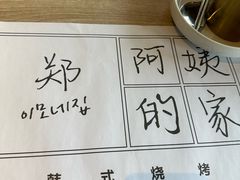 郑 阿姨
이모네집 的家
韩式烧烤